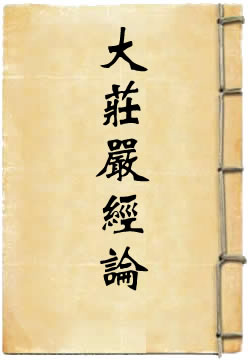 大莊嚴經論